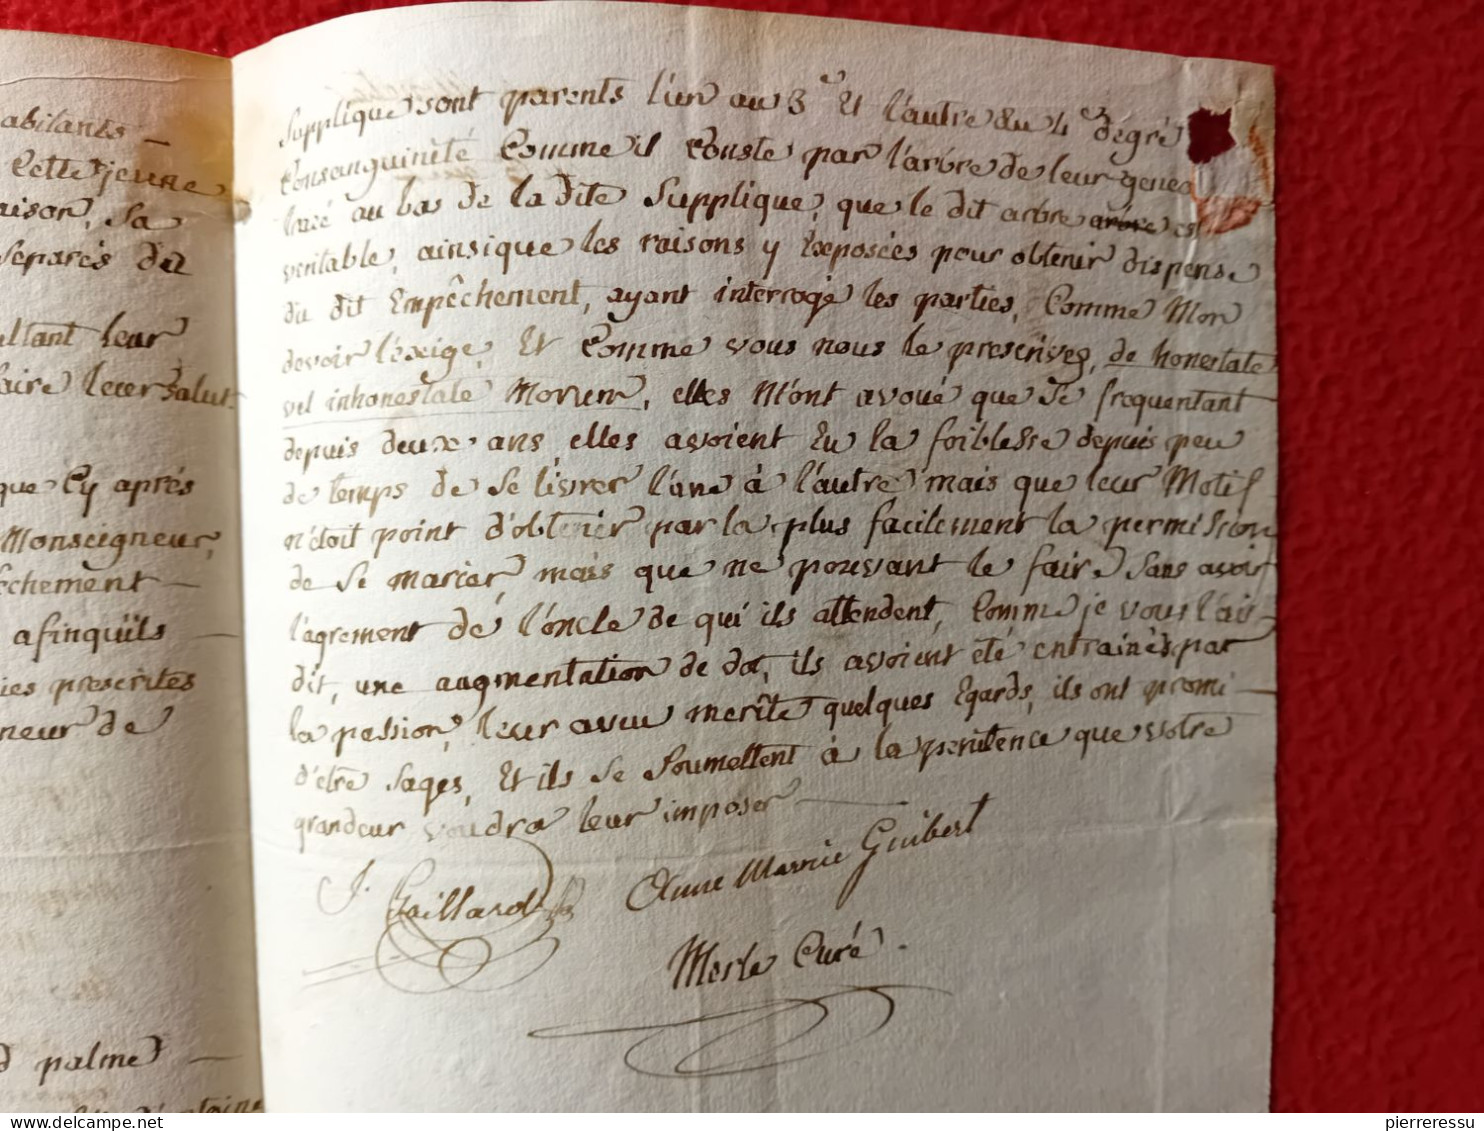 abitants —
Cette jeune
aison, sa
separés du
ultant leur
faire leur salut
que Cy aprés
Monseigneur,
êchement —
afinqu'ils —
ies prescrites
neur de
palme —
Supplique sont parents l'un au 3e Et l'autre au 4e degré
Consanguinité Comme il Conste par l'arbre de leur genea
tracé au bas de la dite Supplique, que le dit arbre arbre est
veritable, ainsique les raisons y Exposées pour obtenir dispense
du dit Empêchement, ayant interrogé les parties, Comme Mon
devoir l'exige, Et Comme vous nous le prescrives, de honestate
vel inhonestate Morum, elles M'ont avoué que Se frequentant
depuis deux ans, elles avoient Eu la foiblesse depuis peu
de temps de Se livrer l'une à l'autre mais que leur Motif
n'étoit point d'obtenir par la plus facilement la permission
de Se marier, mais que ne pouvant le faire Sans avoir
l'agrement de l'oncle de qui ils attendent, Comme je vous l'ai
dit, une augmentation de dot, ils avoient été entrainés par
la passion, leur aveu merite quelques Egards, ils ont promi —
d'etre Sages, Et ils Se Soumettent à la penitence que votre
grandeur voudra leur imposer —
J. Gaillard Anne Marie Guibert
Merle Curé.
pierreressu
delcampe.net